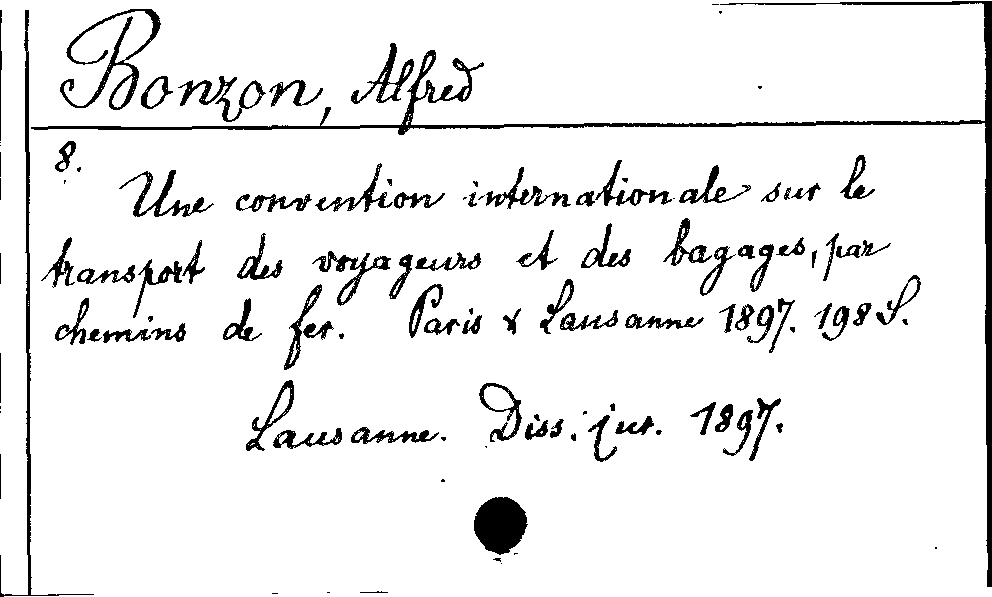 Bonzon, Alfred
8.
Une convention internationale sur le
transport des voyageurs et des bagages, par
chemins de fer. Paris & Lausanne 1897. 198 S.
Lausanne. Diss. jur. 1897.